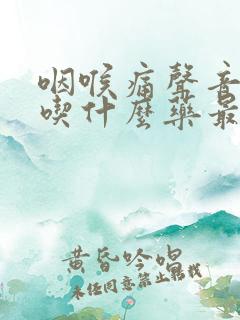 咽喉痛聲音
喫什麽藥最
黄昏吟唱
未经同意禁止转载